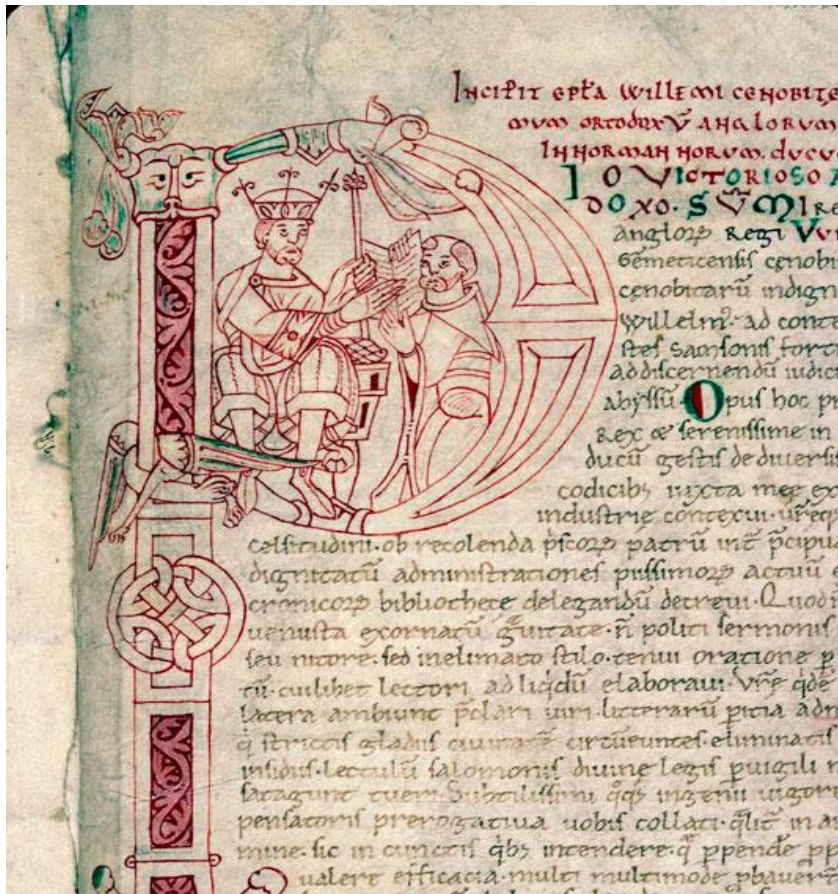 INCIPIT EPLA WILLEMI CENOBITE
MUM ORTODOXŪ ANGLORUM
IN NORMANNORUM. DUCU
IO VICTORIOSO A
DOXO. SŪMI RE
anglorꝝ Regi Vvi
Gemeticensis cenobi
cenobitarū indign
Willelmꝰ. ad conte
stes Samsonis forti
ad discernendū iudici
abyssū. Opus hoc pi
Rex & serenissime in
ducū gestis de diuersis
codicibꝫ iuxta mee ex
industrie contexui. urēq
celsitudini. ob recolenda p̄scorꝝ patrū int̄ p̄cipua
dignitatū administrationes piissimorꝝ actuū e
cronicorꝝ bibliothece delegandū decreui. Quod
uenusta exornatū g̊uitate. n̄ politi sermonis
seu nitore. sed inelimato stilo. tenui oratione p
tū. cuilibet lectori ad liq̇dū elaboraui. Vr̄e q̇dē
latera ambiunt p̄clari uiri. litterarū p̄itia adm
q̇ strictis gladiis ciuitatē circūeuntes. eliminatis
insidiis. lectulū salomonis diuine legis p̱uigili
satagunt tueri. Subtilissimi q̄qꝫ ingenii uigore
pensatoris prerogatiua uobis collati. q̄lit̄ in
mine. sic in cunctis q̇bꝫ intendere. ꝑpende
ualere efficacia. multi multimode ꝓbauer